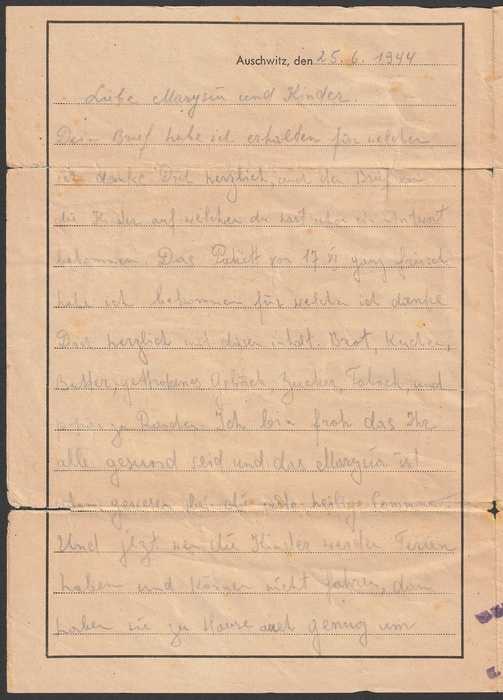 Auschwitz, den 25. 6. 1944
Liebe Marysiu und Kinder.
Dein Brief habe ich erhalden für welchen
ich danke Dir herzlich, und den Brief von
die Kinder auf welchen du hast schon ein Antwort
bekommen. Das Pakett von 17. VI ganz frisch
habe ich bekommen für welchen ich danke
Dir herzlich mit disen inhalt. Brot, Kuchen,
Butter, Gebäck, Zucker, Taback, und
zu Runden. Ich bin froh das Ihr
alle gesund seid und das Marysia ist
schon gewesen bei die erste heilige
Und jezt wen die Kinder werden Ferien
haben und können nicht fahren, dan
haben sie zu Hause auch genug um